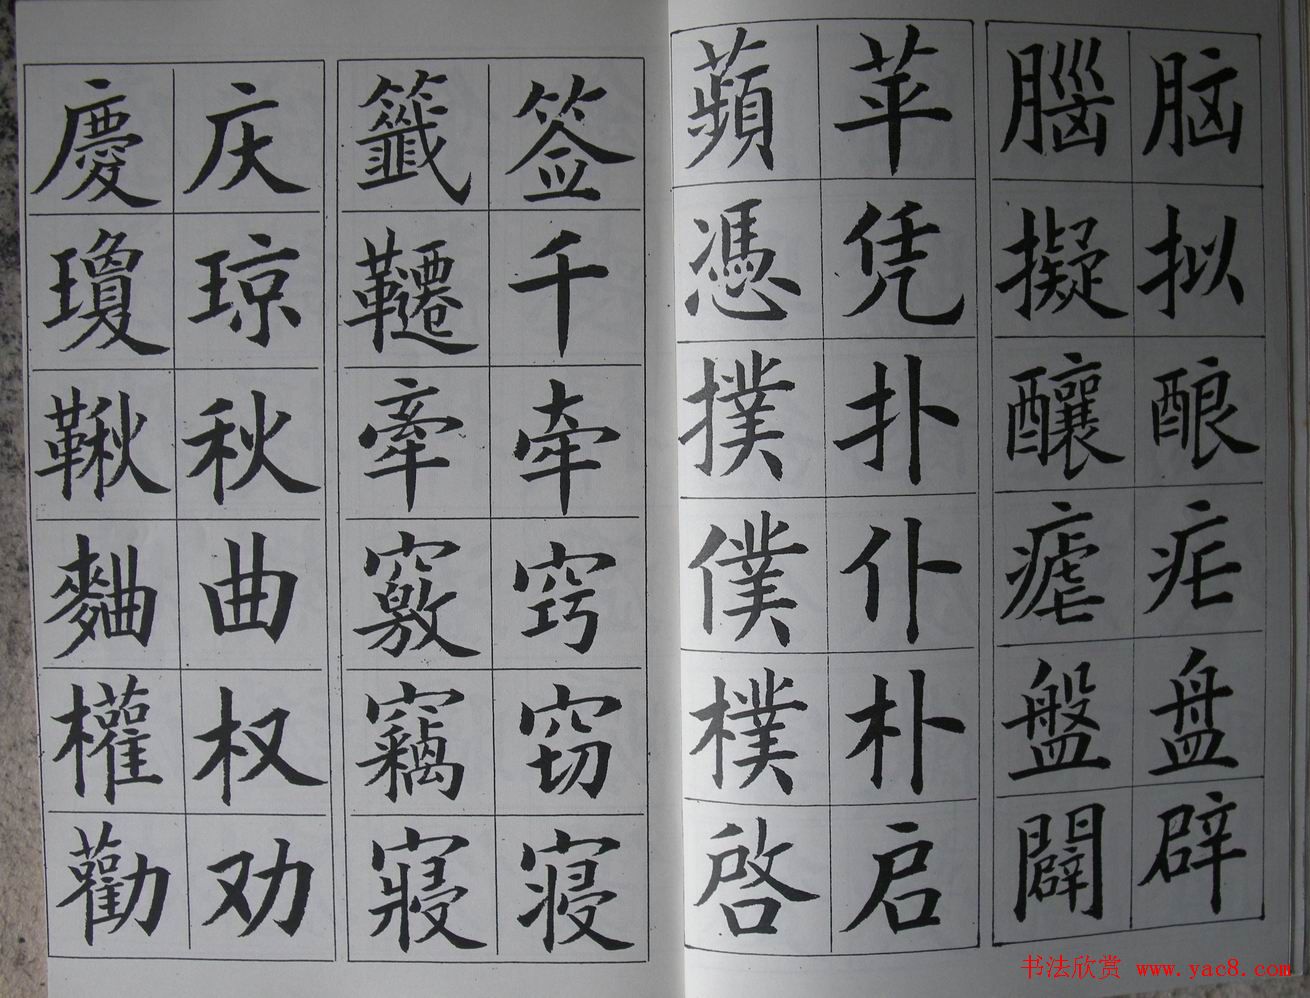 脑 腦
拟 擬
酿 釀
疟 瘧
盘 盤
辟 闢
苹 蘋
凭 憑
扑 撲
仆 僕
朴 樸
启 啓
签 籤
千 韆
牵 牽
窍 竅
窃 竊
寝 寢
庆 慶
琼 瓊
秋 鞦
曲 麯
权 權
劝 勸
书法欣赏 www.yac8.com